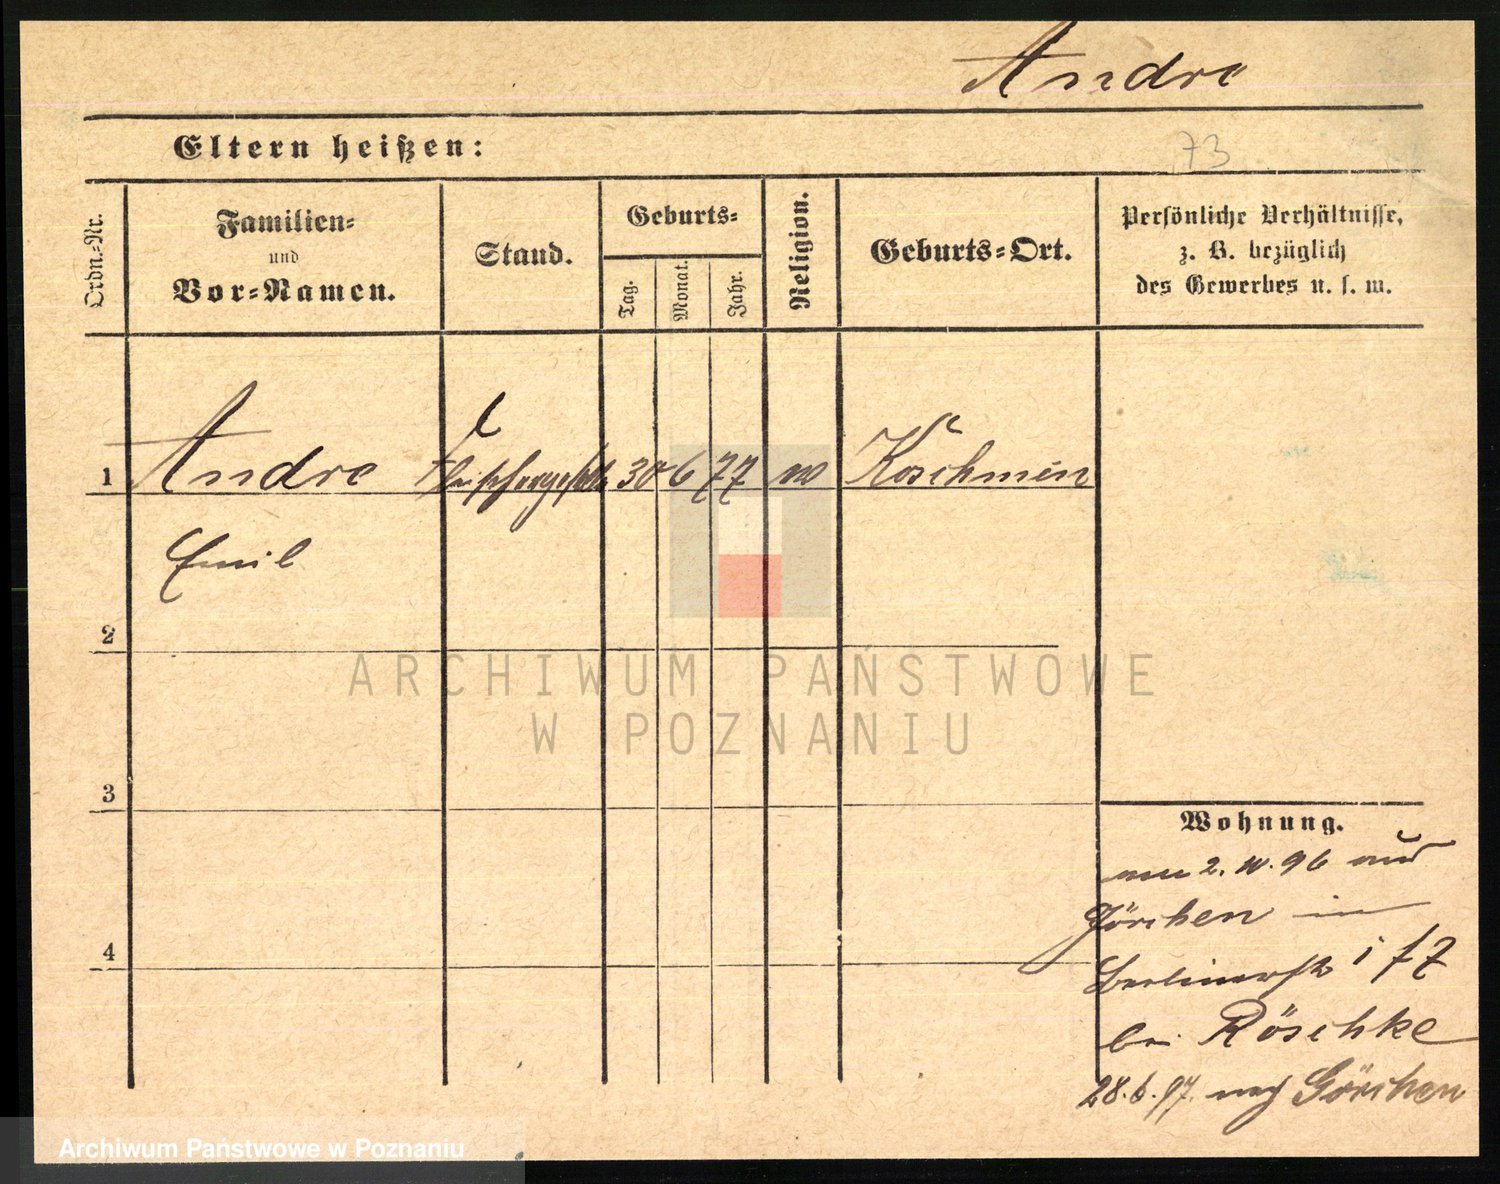 Andre
Eltern heißen:
73
Ordn.-Nr.
Familien-
und
Vor-Namen.
Stand.
Geburts-
Tag.
Monat.
Jahr.
Religion.
Geburts-Ort.
Persönliche Verhältnisse,
z. B. bezüglich
des Gewerbes u. s. w.
1 Andre 30 6 77 Koschmin
Emil
2
3
4
ARCHIWUM PAŃSTWOWE
W POZNANIU
Wohnung.
am 2. 10. 96 aus
Görchen in
Berlinerstr
bei Röschke
28. 6. 97. nach Görchen
Archiwum Państwowe w Poznaniu